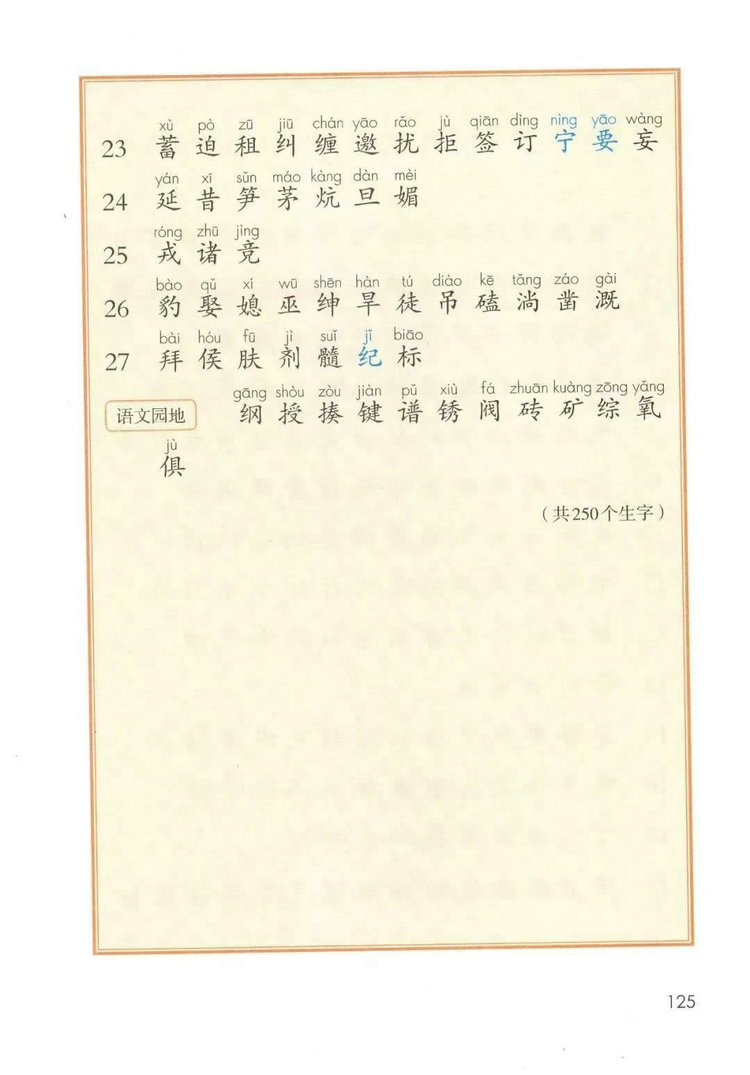 xù pò zū jiū chán yāo rǎo jù qiān dìng nìng yāo wàng
23 蓄 迫 租 纠 缠 邀 扰 拒 签 订 宁 要 妄
yán xī sǔn máo kàng dàn mèi
24 延 昔 笋 茅 炕 旦 媚
róng zhū jìng
25 戎 诸 竞
bào qǔ xí wū shēn hàn tú diào kē tǎng záo gài
26 豹 娶 媳 巫 绅 旱 徒 吊 磕 淌 凿 溉
bài hóu fū jì suǐ jǐ biāo
27 拜 侯 肤 剂 髓 纪 标
gāng shòu zòu jiàn pǔ xiù fá zhuān kuàng zōng yǎng
语文园地 纲 授 揍 键 谱 锈 阀 砖 矿 综 氧
jù
俱
（共250个生字）
125